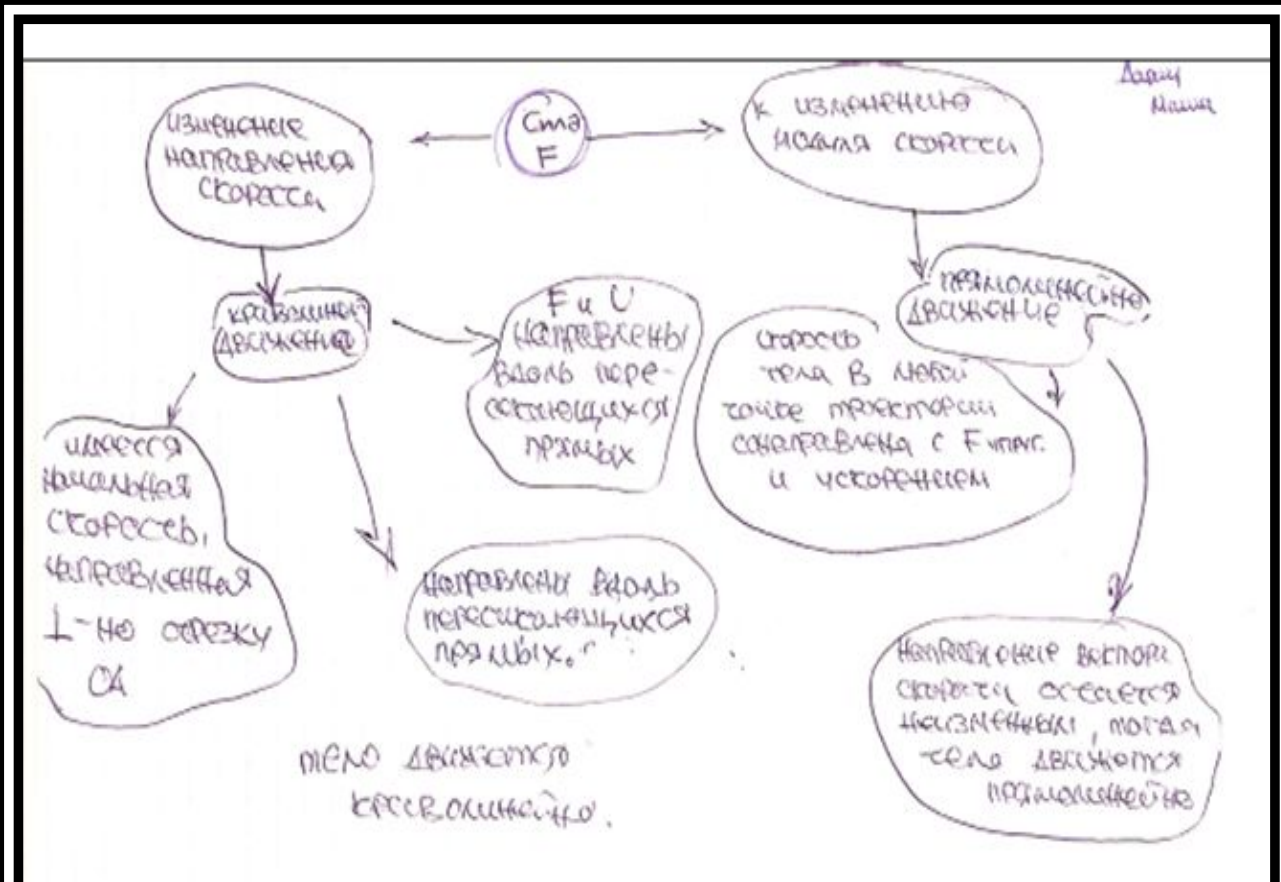 изменение
направления
скорости
Сила
F
к изменению
модуля скорости
Маша
криволиней
движение
F и U
направлены
вдоль пере-
секающихся
прямых
прямолинейно
движение
скорость
тела в любой
точке траектории
сонаправлена с F
и ускорением
имеется
начальная
скорость,
направленная
⊥-но отрезку
ОА
направлены вдоль
пересикающихся
прямых.
направление вектора
скорости остается
неизменным,
тело движется
прямолинейно
тело движется
криволинейно.